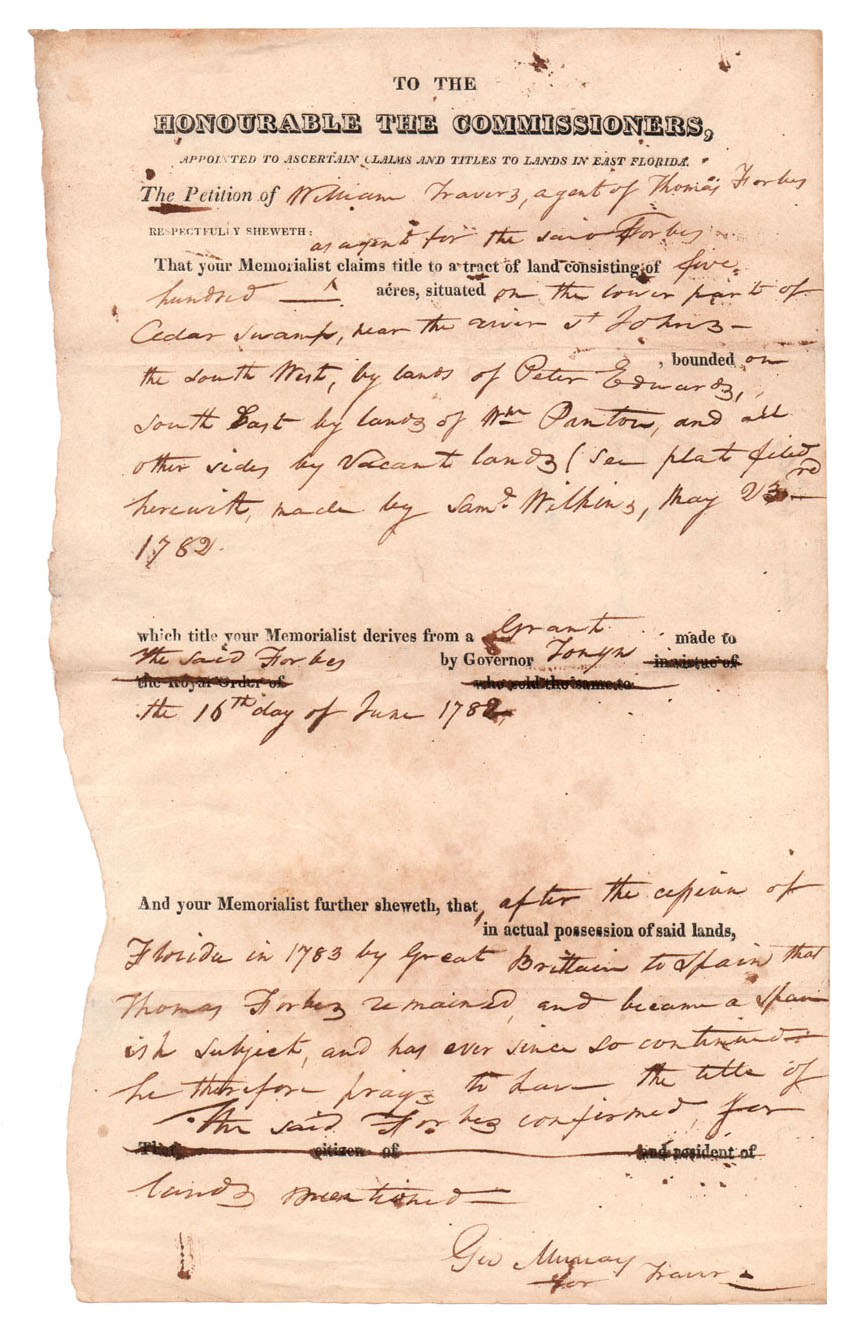 TO THE
HONOURABLE THE COMMISSIONERS,
APPOINTED TO ASCERTAIN CLAIMS AND TITLES TO LANDS IN EAST FLORIDA.
The Petition of William Travers, agent of Thomas Forbes
RESPECTFULLY SHEWETH:
as agent for the said Forbes
That your Memorialist claims title to a tract of land consisting of five
hundred acres, situated on the lower part of
Cedar swamp, near the river St Johns –
, bounded on
the South West, by lands of Peter Edwards,
South East by lands of Wm Panton, and all
other sides by Vacant lands (See plat filed
herewith, made by Saml. Wilkins, May 23rd
1782.
which title your Memorialist derives from a Grant made to
the said Forbes by Governor Tonyn in virtue of
the Royal Order of who sold the same to
the 16th day of June 1782,
And your Memorialist further sheweth, that, after the cession of
in actual possession of said lands,
Florida in 1783 by Great Brittain to Spain that
Thomas Forbes remained, and became a Span
ish subject, and has ever since so continued –
he therefore prays to have the title of
the said Forbes confirmed, for
That, citizen of and resident of
lands mentioned –
Geo Murray
for Travers